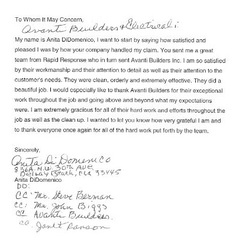 To Whom It May Concern,
Avanti Builders &
My name is Anita DiDomenico, I want to start by saying how satisfied and
pleased I was by how your company handled my claim. You sent me a great
team from Rapid Response who in turn sent Avanti Builders Inc. I am so satisfied
by their workmanship and their attention to detail as well as their attention to the
customer's needs. They were clean, orderly and extremely effective. They did a
beautiful job. I would especially like to thank Avanti Builders for their exceptional
work throughout the job and going above and beyond what my expectations
were. I am extremely gracious for all of their hard work and efforts throughout the
job as well as the clean up. I wanted to let you know how very grateful I am and
to thank everyone once again for all of the hard work put forth by the team.
Sincerely,
Anita DiDomenico
30th AVE
Delray Bch, FLA 33445
Anita DiDomenico
CC: Mr. Steve Berman
CC: Mr. John Biggs
CC: Avanti Builders
CC: Janet Ranson